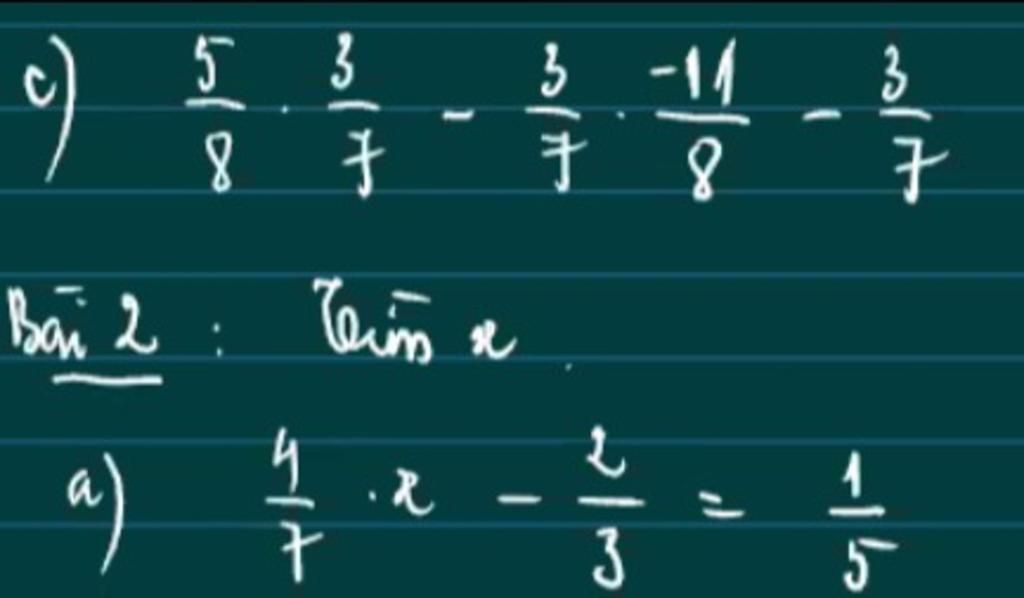 c) 5/8 . 3/7 - 3/7 . -11/8 - 3/7
Bài 2 : Tìm x .
a) 4/7 . x - 2/3 = 1/5